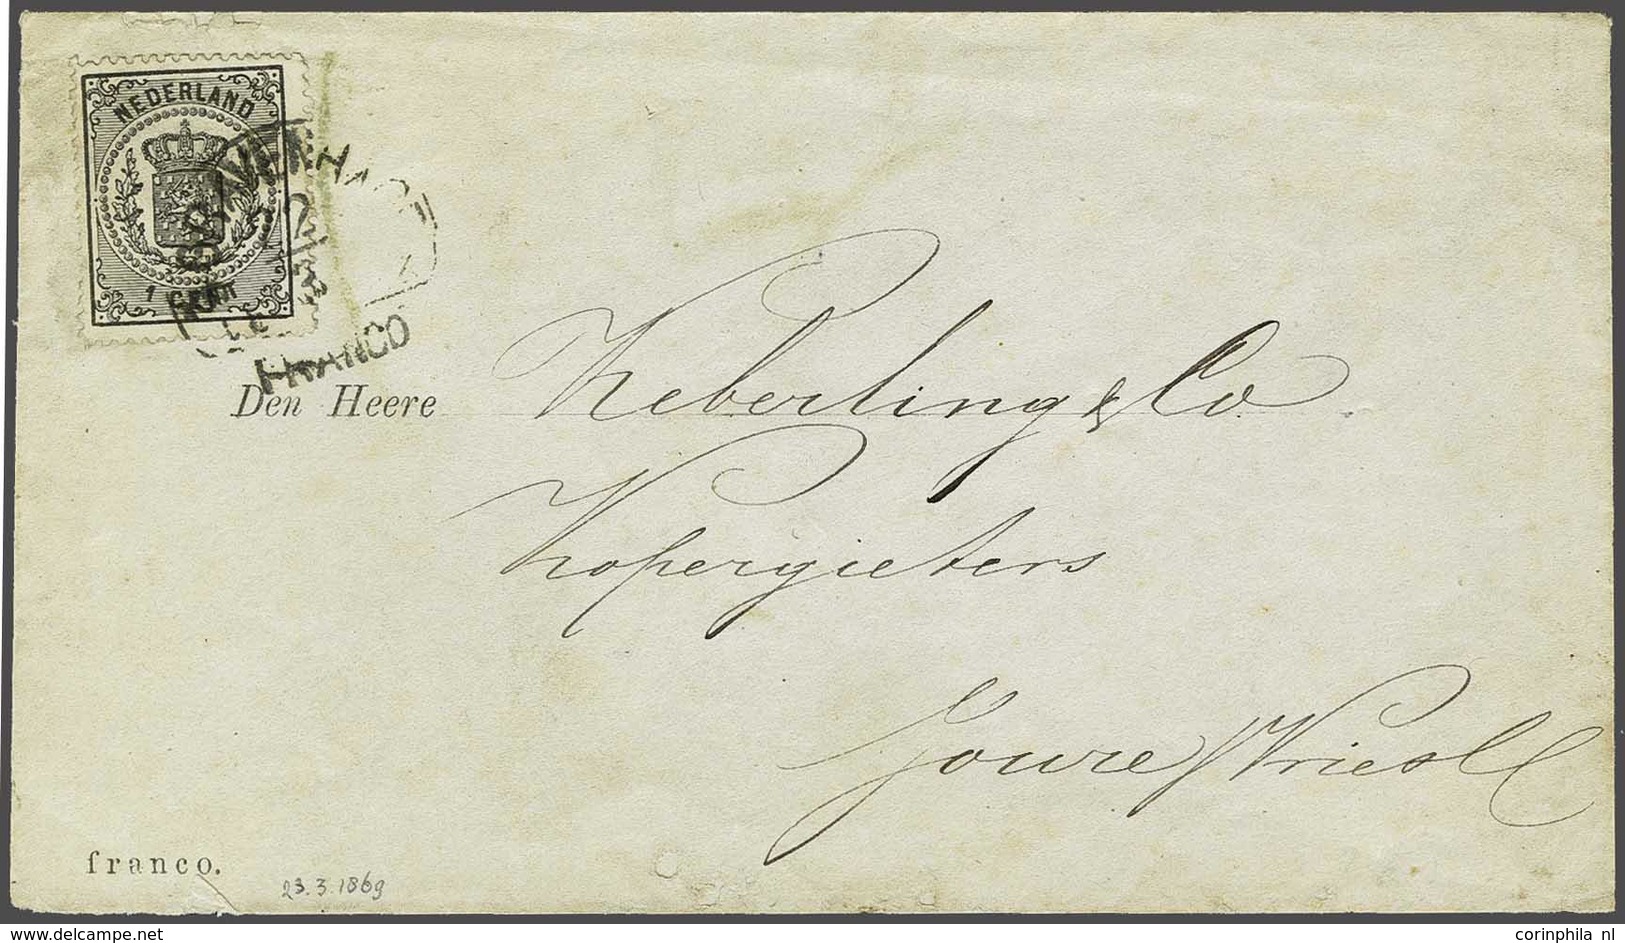 NEDERLAND
1 CENT
'S GRAVENHAGE
FRANCO
Den Heere Keberling & Co
Kopergieters
Joure Vriesl
franco.
23.3.1869
www.delcampe.net
corinphila nl